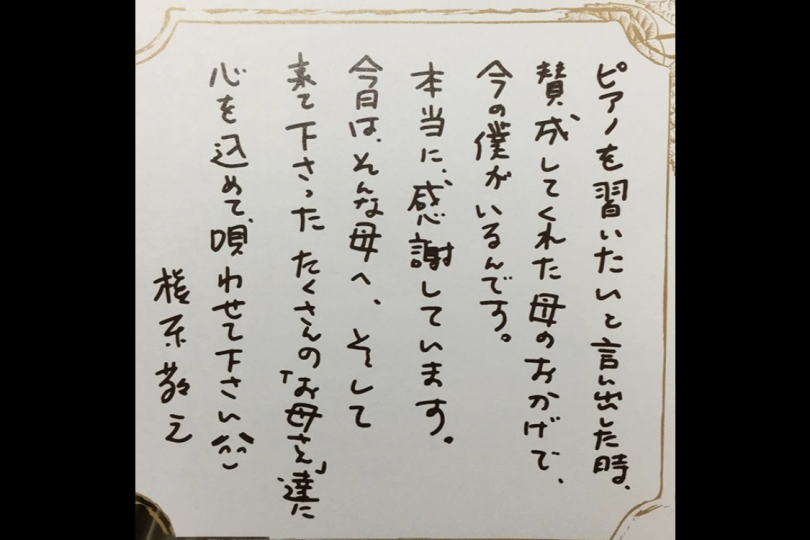 ピアノを習いたいと言い出した時、
賛成してくれた母のおかげで、
今の僕がいるんです。
本当に、感謝しています。
今日は、そんな母へ、そして
来て下さった たくさんの「お母さん」達に
心を込めて、唄わせて下さい
槇原敬之